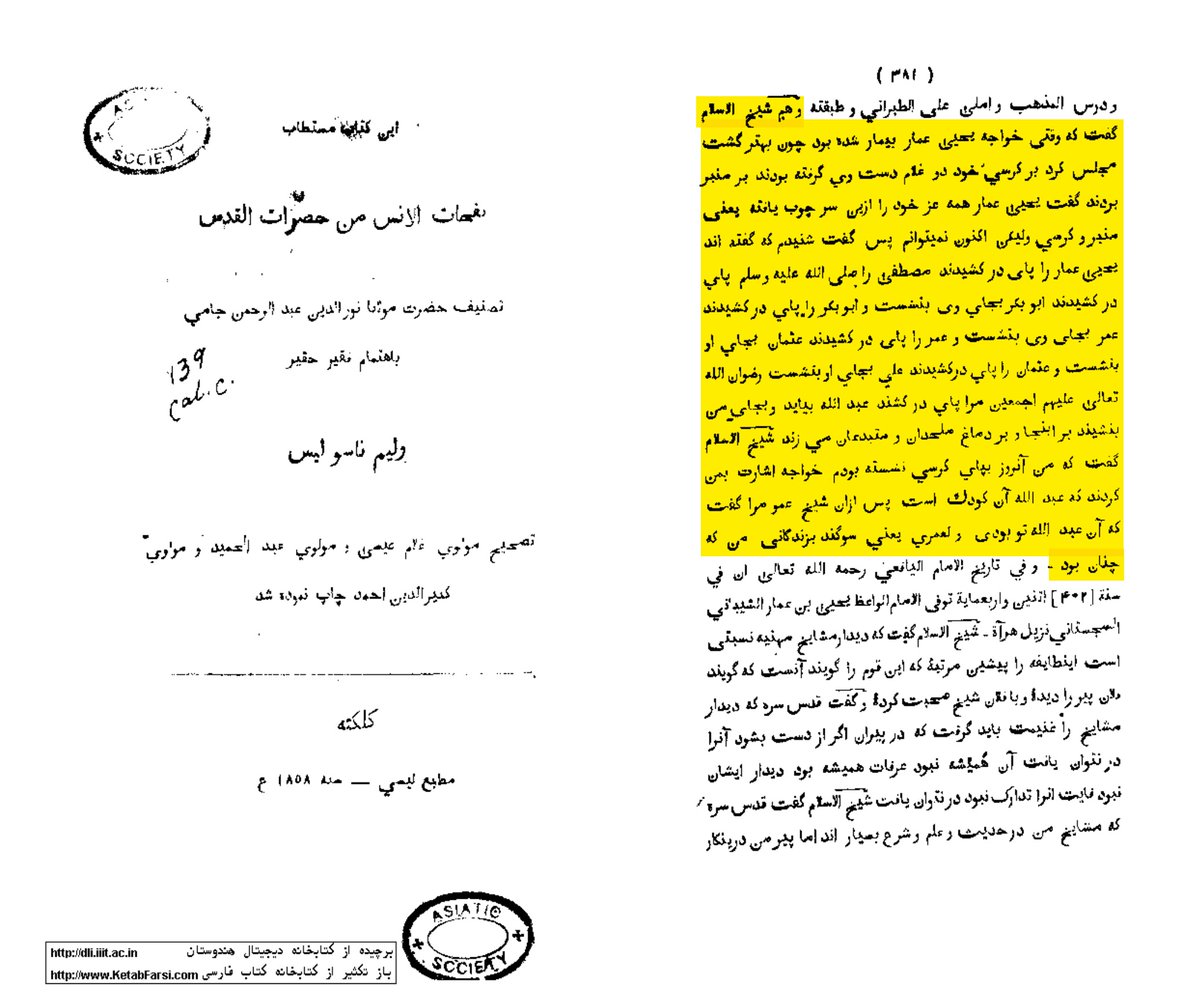 ASIATIC SOCIETY
این کتاب مستطاب
نفحات الانس من حضرات القدس
تصنیف حضرت مولانا نورالدین عبد الرحمن جامي
139
Cal. C.
باهتمام فقیر حقیر
ولیم ناسو لیس
تصحیح مولوي غلام عیسی و مولوي عبد الحمید و مولوي
کبیر الدین احمد چاپ نموده شد
کلکته
مطبع لیسي — سنه ۱۸۵۸ ع
ASIATIC SOCIETY
برچیده از کتابخانه دیجیتال هندوستان http://dli.iiit.ac.in
باز تکثیر از کتابخانه کتاب فارسی http://www.KetabFarsi.com
( ۳۸۱ )
و درس المذهب و املی علی الطبراني و طبقته وهم شیخ الاسلام
گفت که وقتی خواجه یحیی عمار بیمار شده بود چون بهتر گشت
مجلس کرد بر کرسي خود دو غلام دست وي گرفته بودند بر منبر
بردند گفت یحیی عمار همه عز خود را ازین سر چوب یافته یعنی
منبر و کرسي ولیکن اکنون نمیتوانم پس گفت شنیدم که گفته اند
یحیی عمار را پای در کشیدند مصطفی را صلی الله علیه وسلم پاي
در کشیدند ابو بکر بجاي وی بنشست و ابو بکر را پاي در کشیدند
عمر بجاي وی بنشست و عمر را پاي در کشیدند عثمان بجاي او
بنشست و عثمان را پاي درکشیدند علي بجاي او بنشست رضوان الله
تعالی علیهم اجمعین مرا پاي در کشند عبد الله بیاید و بجاي من
بنشیند بر اینجا و بر دماغ ملحدان و مبتدعان مي زند شیخ الاسلام
گفت که من آنروز بپاي کرسي نشسته بودم خواجه اشارت بمن
کردند که عبد الله آن کودك است پس ازان شیخ عمو مرا گفت
که آن عبد الله تو بودی و لعمري یعني سوگند بزندگانی من که
چنان بود - و في تاریخ الامام الیافعي رحمه الله تعالی ان في
سنة [۴۰۲] اثنین واربعمایة توفی الامام الواعظ یحیی بن عمار الشیباني
السجستاني نزیل هرآة - شیخ الاسلام گفت که دیدار مشایخ مهینه نسبتی
است اینطایفه را پیشین مرتبهٔ که این قوم را گویند آنست که گویند
فلان پیر را دیدهٔ و با فلان شیخ صحبت کردهٔ وگفت قدس سره که دیدار
مشایخ را غنیمت باید گرفت که در پیران اگر از دست بشود آنرا
در نتوان یافت آن همیشه نبود عرفات همیشه بود دیدار ایشان
نبود فایت انرا تدارک نبود در نتوان یافت شیخ الاسلام گفت قدس سره
که مشایخ من در حدیث و علم و شرع بسیار اند اما پیر من درینکار